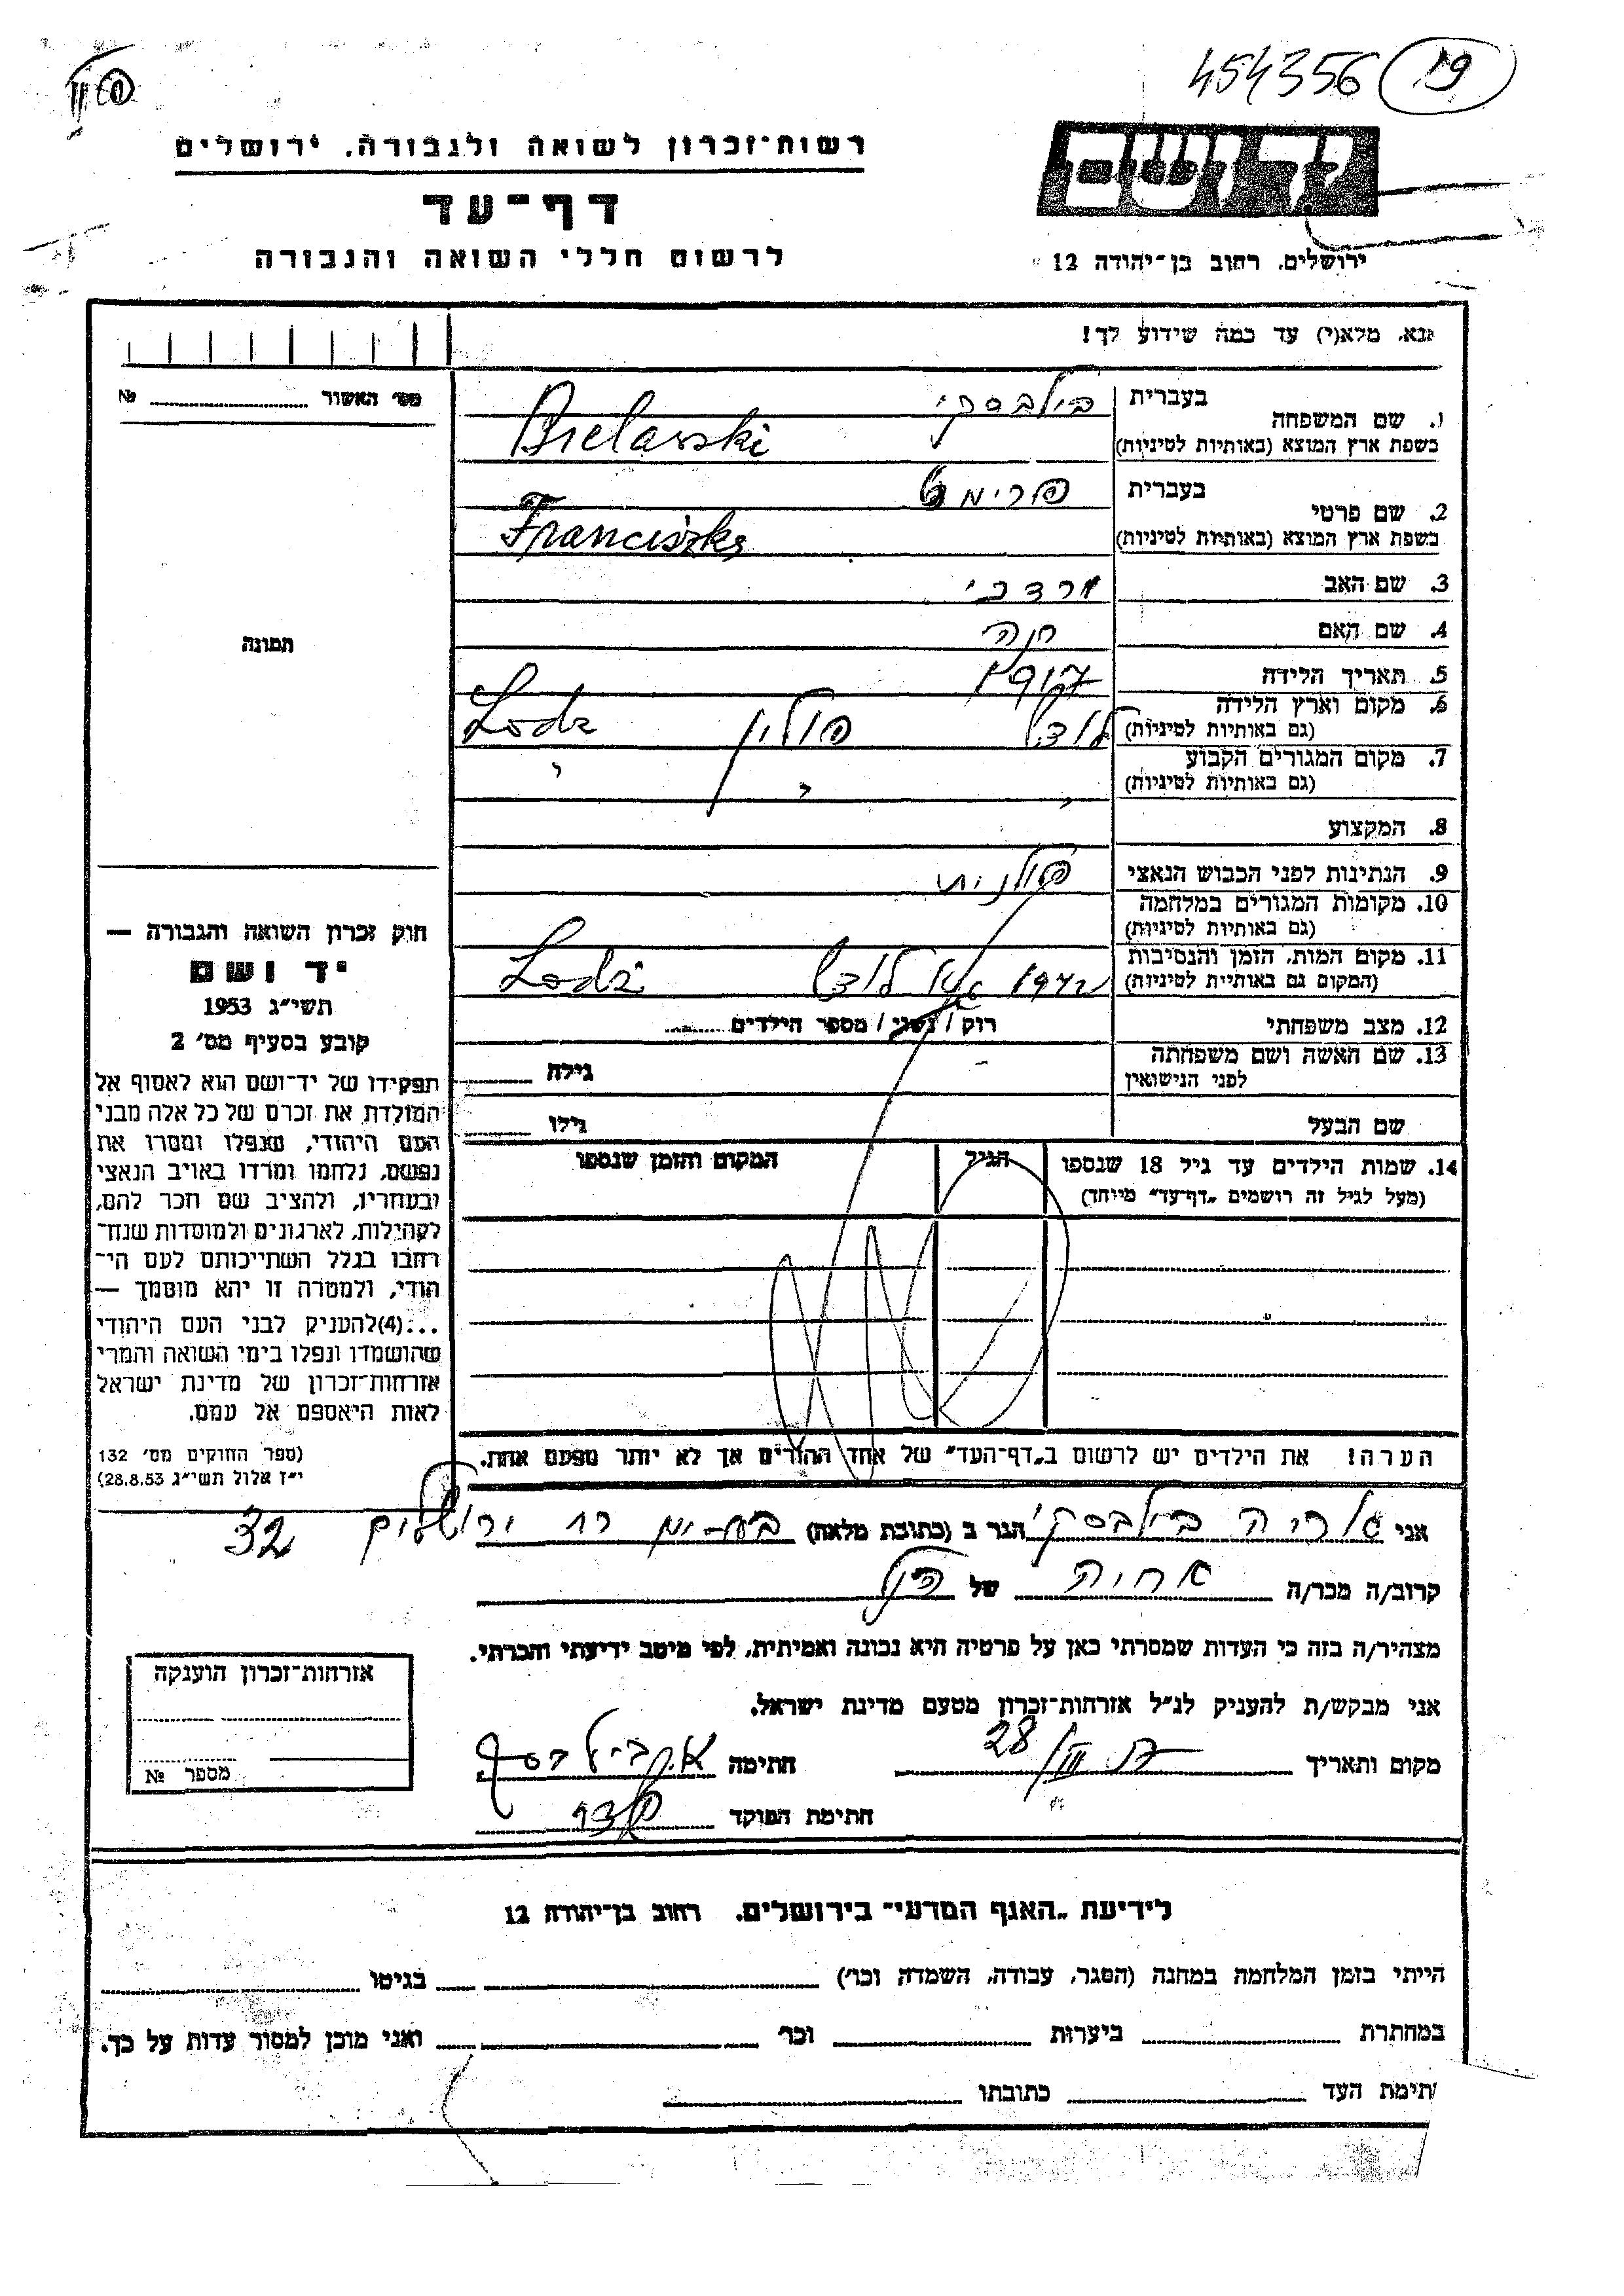 454356 19
רשות־זכרון לשואה ולגבורה. ירושלים
יד ושם
דף־עד
לרשום חללי השואה והגבורה
ירושלים. רחוב בן־יהודה 12
נא. מלא(י) עד כמה שידוע לך!
מס׳ האשור №
בעברית
בילבסקי
1. שם המשפחה
בשפת ארץ המוצא (באותיות לטיניות)
Bielawski
בעברית
2. שם פרטי
בשפת ארץ המוצא (באותיות לטיניות)
Franciszka
3. שם האב
מרדכי
4. שם האם
חנה
תמונה
5. תאריך הלידה
6. מקום וארץ הלידה
(גם באותיות לטיניות)
לודז׳ פולין Lodz
7. מקום המגורים הקבוע
(גם באותיות לטיניות)
8. המקצוע
9. הנתינות לפני הכבוש הנאצי
פולנית
10. מקומות המגורים במלחמה
(גם באותיות לטיניות)
11. מקום המות, הזמן והנסיבות
(המקום גם באותיות לטיניות)
לודז׳ Lodz
12. מצב משפחתי
רוק / נשוי / מספר הילדים
13. שם האשה ושם משפחתה
לפני הנישואין
גילה
שם הבעל
גילו
14. שמות הילדים עד גיל 18 שנספו
(מעל לגיל זה רושמים „דף־עד״ מיוחד)
הגיל
המקום והזמן שנספו
הערה! את הילדים יש לרשום ב„דף־העד״ של אחד ההורים אך לא יותר מפעם אחת.
חוק זכרון השואה והגבורה —
יד ושם
תשי״ג 1953
קובע בסעיף מס׳ 2
תפקידו של יד־ושם הוא לאסוף אל
המולדת את זכרם של כל אלה מבני
העם היהודי, שנפלו ומסרו את
נפשם, נלחמו ומרדו באויב הנאצי
ובעוזריו, ולהציב שם וזכר להם,
לקהילות, לארגונים ולמוסדות שנח־
רבו בגלל השתייכותם לעם הי־
הודי, ולמטרה זו יהא מוסמך —
...(4)להעניק לבני העם היהודי
שהושמדו ונפלו בימי השואה והמרי
אזרחות־זכרון של מדינת ישראל
לאות היאספם אל עמם.
(ספר החוקים מס׳ 132
י״ז אלול תשי״ג 28.8.53)
אני אריה בילבסקי הגר ב (כתובת מלאה) ירושלים 32
קרוב/ה מכר/ה של
מצהיר/ה בזה כי העדות שמסרתי כאן על פרטיה היא נכונה ואמיתית, לפי מיטב ידיעתי והכרתי.
אני מבקש/ת להעניק לנ״ל אזרחות־זכרון מטעם מדינת ישראל.
מקום ותאריך 28/III חתימה א. בילבסקי
חתימת הפוקד
אזרחות־זכרון הוענקה
מספר №
לידיעת „האגף המדעי״ בירושלים. רחוב בן־יהודה 12
הייתי בזמן המלחמה במחנה (הסגר, עבודה, השמדה וכו׳) בגיטו
במחתרת ביערות וכו׳ ואני מוכן למסור עדות על כך.
תימת העד כתובתו